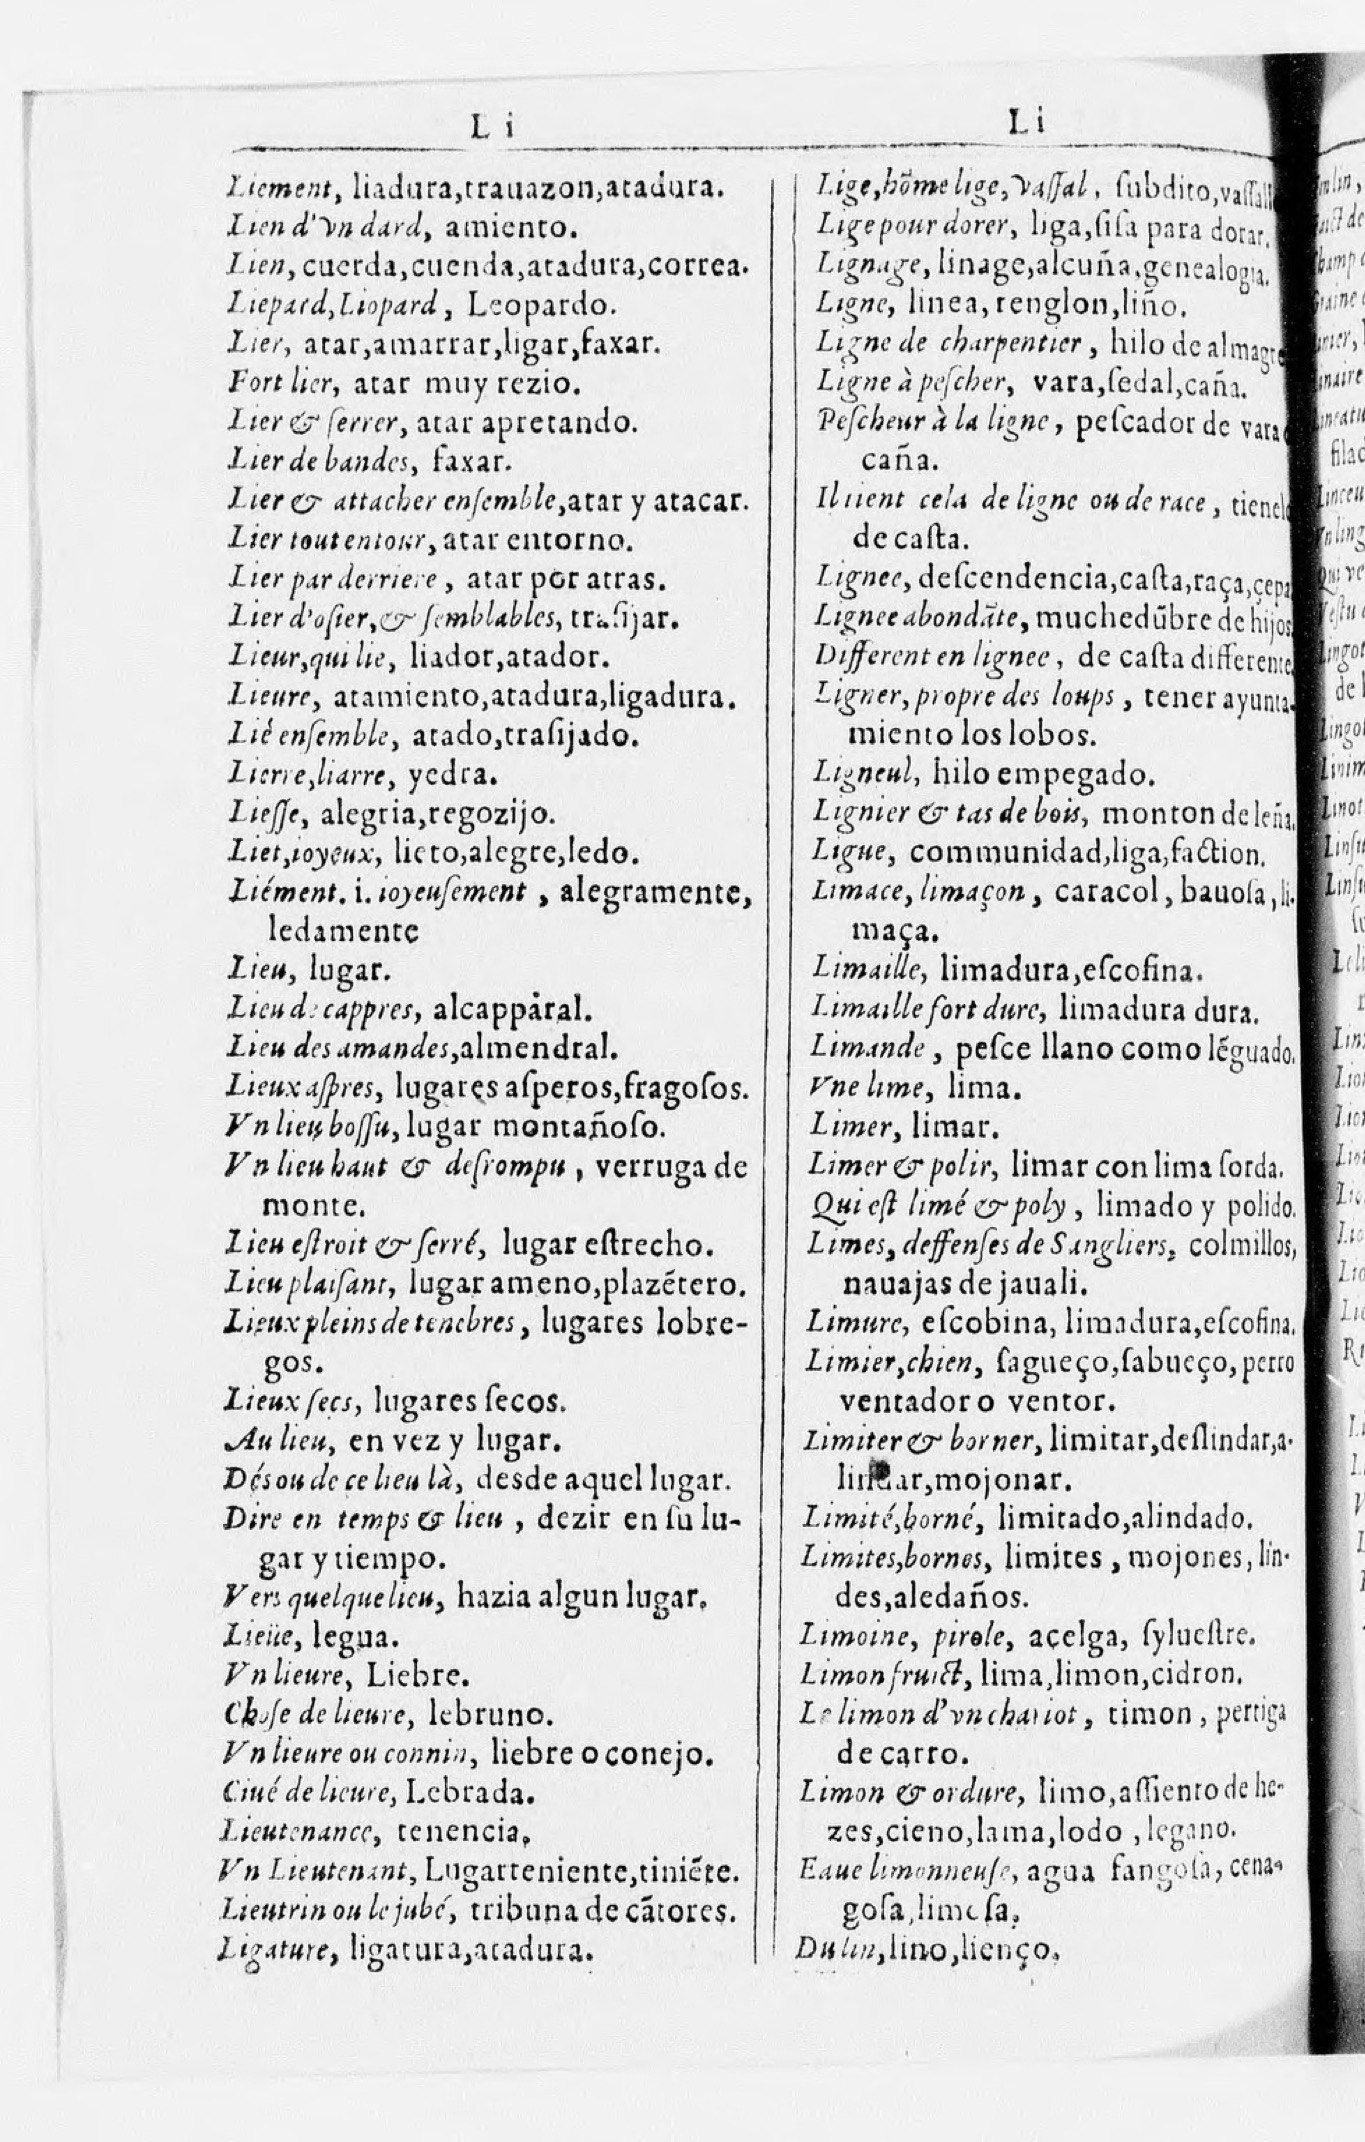 L i
Liement, liadura,trauazon,atadura.
Lien d'vn dard, amiento.
Lien, cuerda,cuenda,atadura,correa.
Liepard,Liopard, Leopardo.
Lier, atar,amarrar,ligar,faxar.
Fort lier, atar muy rezio.
Lier & ſerrer, atar apretando.
Lier de bandes, faxar.
Lier & attacher enſemble,atar y atacar.
Lier tout entour, atar entorno.
Lier par derriere, atar por atras.
Lier d'oſier,& ſemblables, traſijar.
Lieur,qui lie, liador,atador.
Lieure, atamiento,atadura,ligadura.
Lié enſemble, atado,traſijado.
Lierre,liarre, yedra.
Lieſſe, alegria,regozijo.
Liet,ioyeux, lieto,alegre,ledo.
Liément. i. ioyeuſement, alegramente,
ledamente
Lieu, lugar.
Lieu de cappres, alcapparal.
Lieu des amandes,almendral.
Lieux aſpres, lugares aſperos,fragoſos.
Vn lieu boſſu, lugar montañoſo.
Vn lieu haut & deſrompu, verruga de
monte.
Lieu eſtroit & ſerré, lugar eſtrecho.
Lieu plaiſant, lugar ameno,plazẽtero.
Lieux pleins de tenebres, lugares lobre-
gos.
Lieux ſecs, lugares ſecos.
Au lieu, en vez y lugar.
Dés ou de ce lieu là, desde aquel lugar.
Dire en temps & lieu, dezir en ſu lu-
gar y tiempo.
Vers quelque lieu, hazia algun lugar.
Lieüe, legua.
Vn lieure, Liebre.
Choſe de lieure, lebruno.
Vn lieure ou connin, liebre o conejo.
Ciué de lieure, Lebrada.
Lieutenance, tenencia.
Vn Lieutenant, Lugarteniente,tiniẽte.
Lieutrin ou le jubé, tribuna de cãtores.
Ligature, ligatura,atadura.
L i
Lige,hõme lige,vaſſal, ſubdito,vaſſall
Lige pour dorer, liga,ſiſa para dorar.
Lignage, linage,alcuña,genealogia.
Ligne, linea,renglon,liño.
Ligne de charpentier, hilo de almagre
Ligne à peſcher, vara,ſedal,caña.
Peſcheur à la ligne, peſcador de vara
caña.
Il tient cela de ligne ou de race, tienelo
de caſta.
Lignee, deſcendencia,caſta,raça,çepa
Lignee abondãte, muchedũbre de hijos.
Different en lignee, de caſta differente.
Ligner,propre des loups, tener ayunta-
miento los lobos.
Ligneul, hilo empegado.
Lignier & tas de bois, monton de leña.
Ligue, communidad,liga,faction.
Limace,limaçon, caracol,bauoſa,li-
maça.
Limaille, limadura,eſcofina.
Limaille fort dure, limadura dura.
Limande, peſce llano como lẽguado.
Vne lime, lima.
Limer, limar.
Limer & polir, limar con lima ſorda.
Qui eſt limé & poly, limado y polido.
Limes, deffenſes de Sangliers, colmillos,
nauajas de jauali.
Limure, eſcobina, limadura,eſcofina.
Limier,chien, ſagueço,ſabueço,perro
ventador o ventor.
Limiter & borner, limitar,deſlindar,a-
lindar,mojonar.
Limité,borné, limitado,alindado.
Limites,bornes, limites, mojones, lin-
des,aledaños.
Limoine, pirole, acelga, ſylueſtre.
Limon fruict, lima,limon,cidron.
Le limon d'vn chariot, timon, pertiga
de carro.
Limon & ordure, limo,aſſiento de he-
zes,cieno,lama,lodo, legano.
Eaue limonneuſe, agua fangoſa, cena-
goſa,limoſa.
Du lin,lino,lienço.